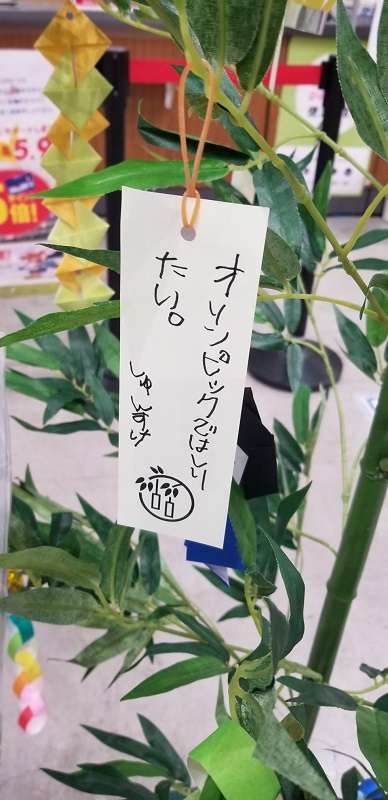 オリンピックではしり
たい。
しゅんすけ
5.9
倍!